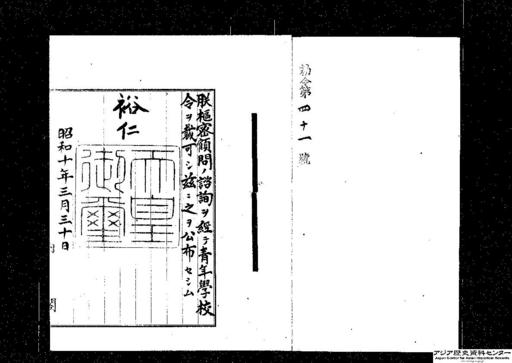 勅令第四十一號
朕樞密顧問ノ諮詢ヲ經テ青年學校
令ヲ裁可シ茲ニ之ヲ公布セシム
裕仁
天皇御璽
昭和十年三月三十日
アジア歴史資料センター
Japan Center for Asian Historical Records